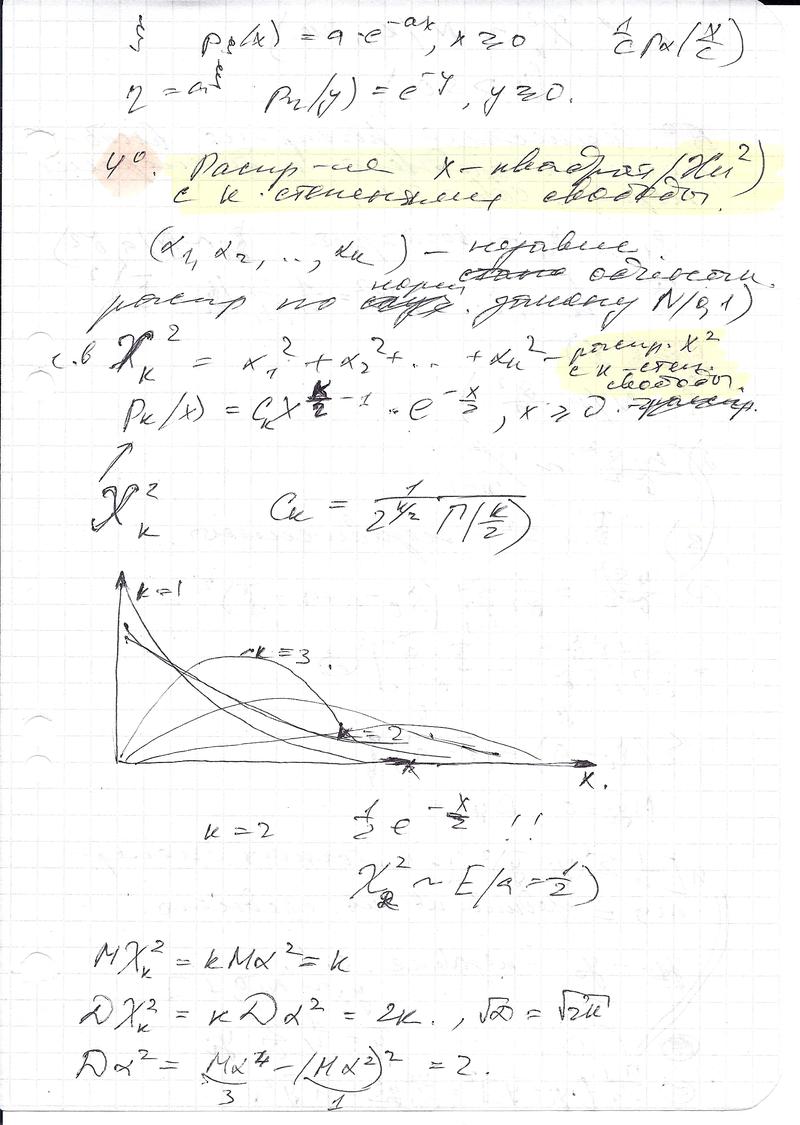 ξ p_ξ(x) = a·e^{-ax}, x ≥ 0 1/c p_α(x/c)
η = aξ p_η(y) = e^{-y}, y ≥ 0.
4°. Распр-ие X-квадрат (Хи²)
с к степенями свободы.
(α₁, α₂, .., α_k) – независ.
норм.
распр по закону N(0,1)
с.в χ_k² = α₁² + α₂² + .. + α_k² – распр. χ²
с к степ.
свободы.
p_k(x) = C_k x^{k/2 - 1} · e^{-x/2}, x ≥ 0.
χ_k² C_k = 1/(2^{k/2} Γ(k/2))
k=1
k=3.
k=2
x.
k=2 1/2 e^{-x/2} !!
χ₂² ~ E(a=1/2)
Mχ_k² = kMα² = k
Dχ_k² = kDα² = 2k., √D = √2k
Dα² = Mα⁴ – (Mα²)² = 2.
3 1